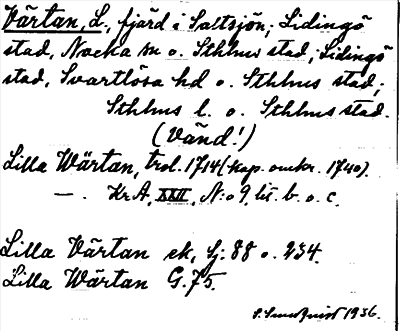 Värtan, L., fjärd i Saltsjön; Lidingö
stad, Nacka sn o. Sthlms stad; Lidingö
stad, Svartlösa hd o. Sthlms stad;
Sthlms l. o. Sthlms stad.
(Vänd!)
Lilla Wärtan, trol. 1714 (kap. omkr. 1740).
—. KrA, XXII, N:o 9, lit. b. o. c.
Lilla Värtan ek, Sj: 88 o. 234.
Lilla Wärtan G. 75.
S. Sundqvist 1936.